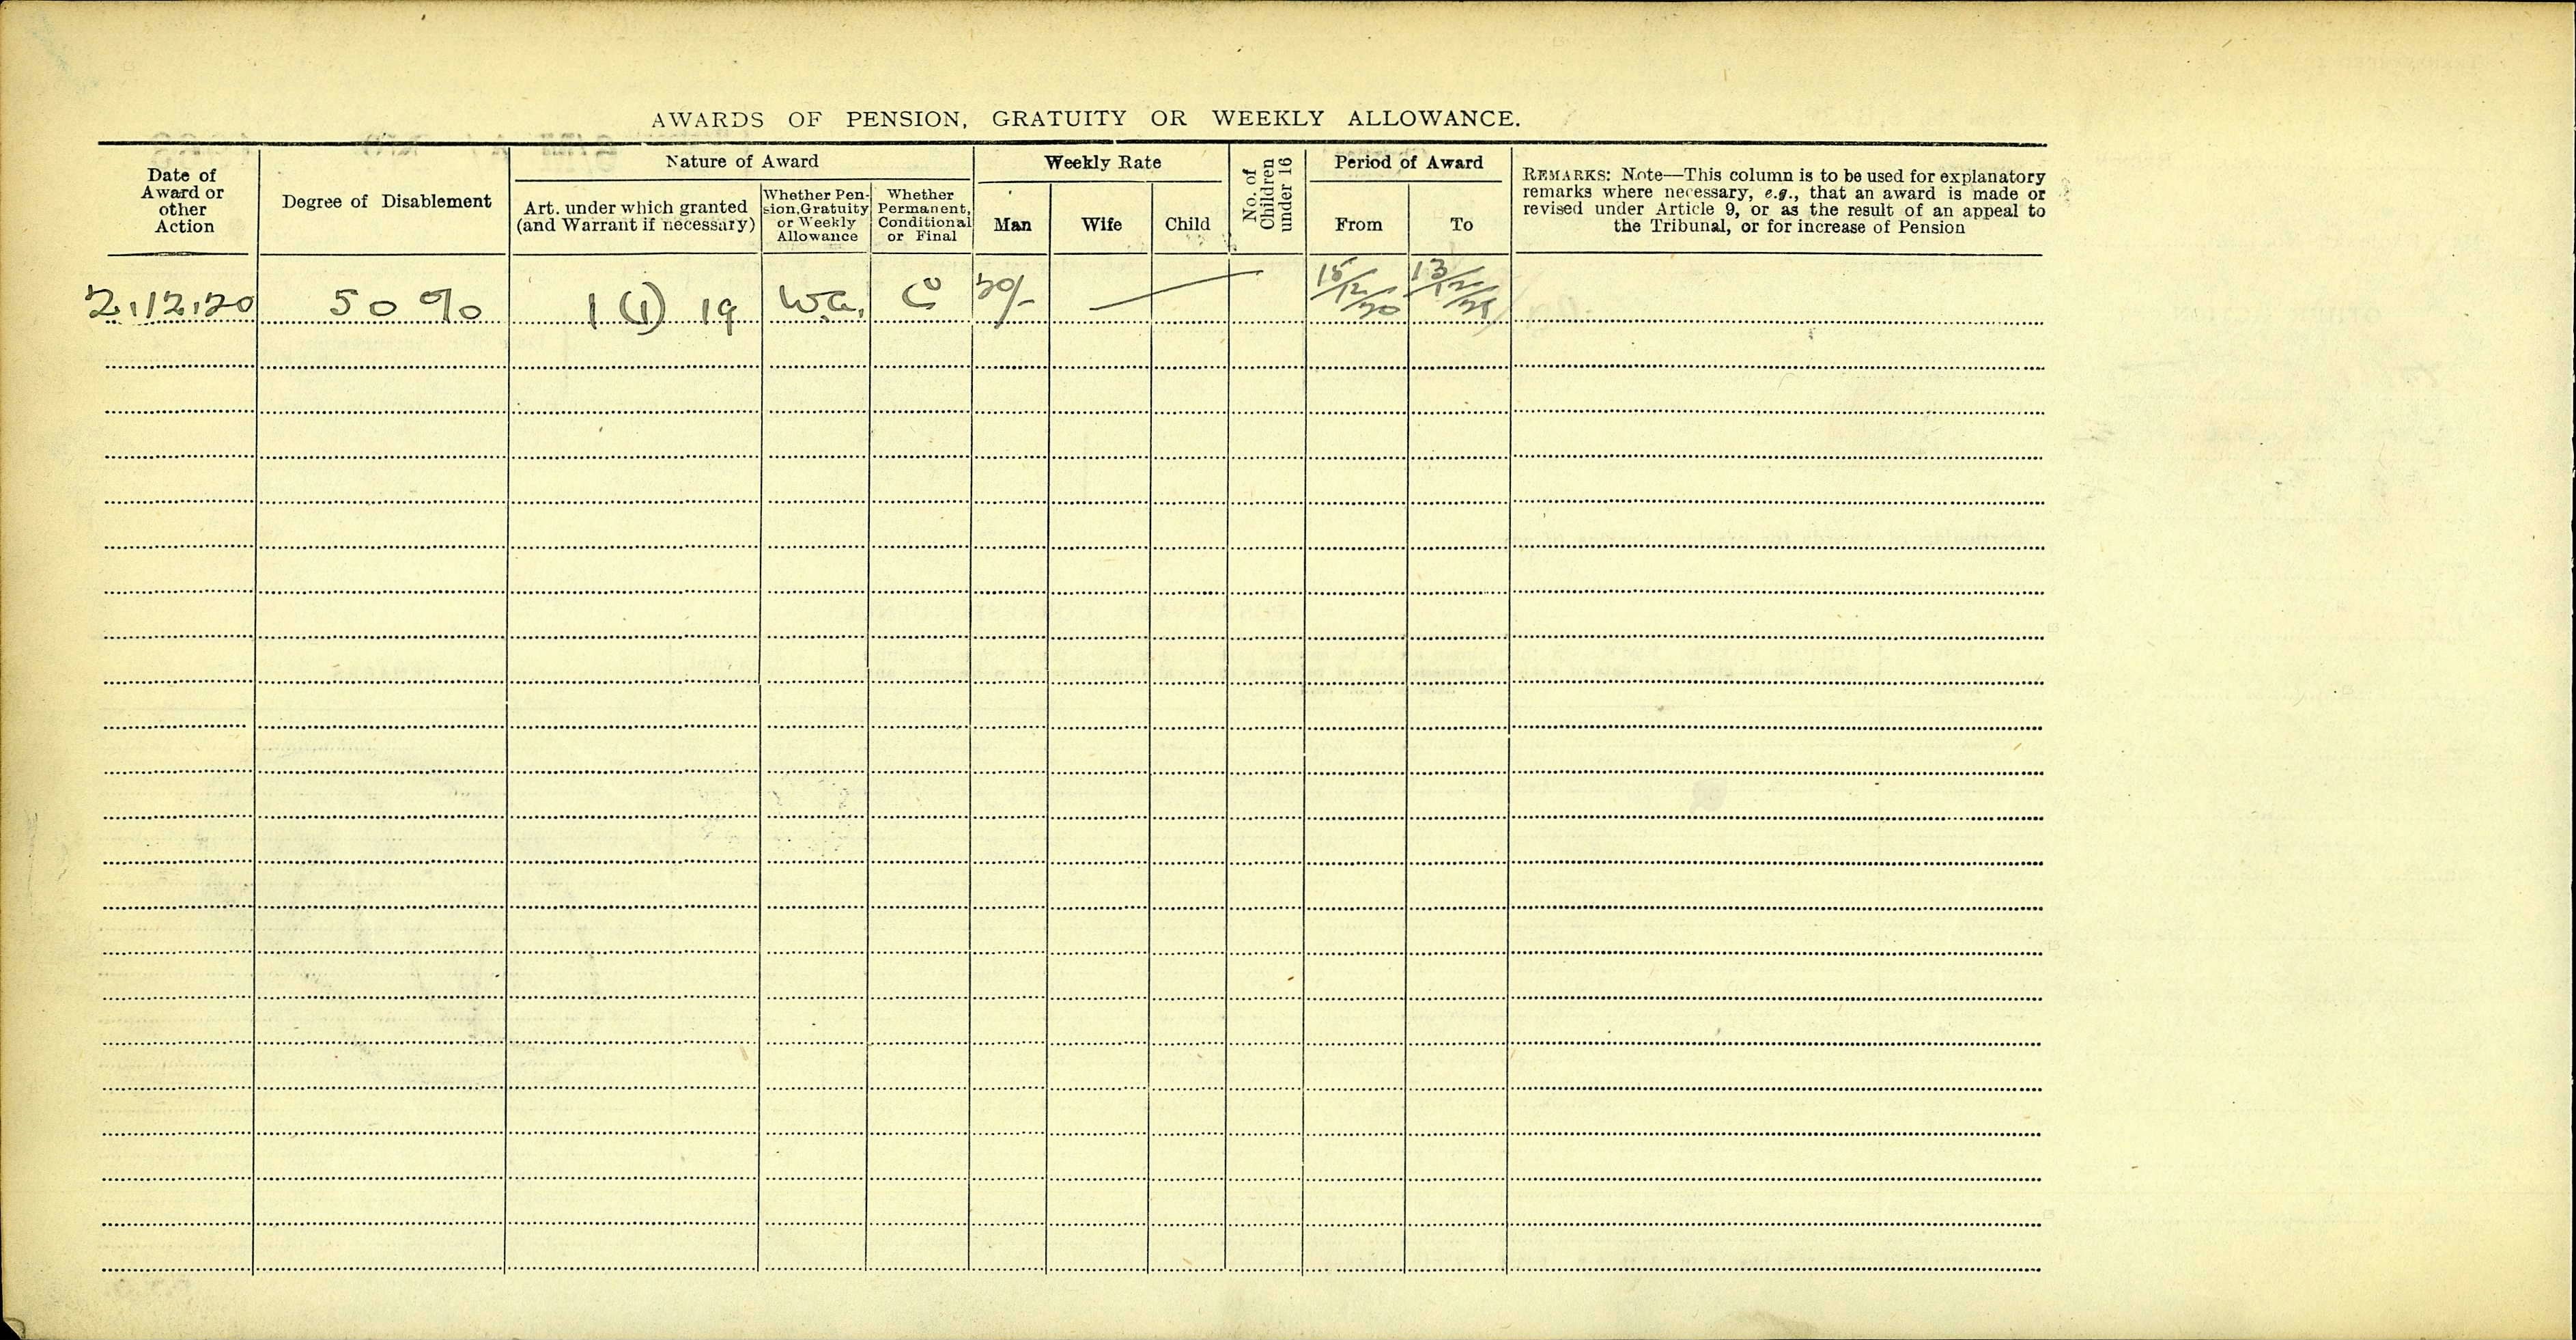 AWARDS OF PENSION, GRATUITY OR WEEKLY ALLOWANCE.
Date of
Award or
other
Action
Degree of Disablement
Nature of Award
Art. under which granted
(and Warrant if necessary)
Whether Pen-
sion, Gratuity
or Weekly
Allowance
Whether
Permanent,
Conditional
or Final
Weekly Rate
Man
Wife
Child
No. of
Children
under 16
Period of Award
From
To
REMARKS: Note—This column is to be used for explanatory
remarks where necessary, e.g., that an award is made or
revised under Article 9, or as the result of an appeal to
the Tribunal, or for increase of Pension
2.12.20 50% 1 (1) 19 W.a. C 20/- 15/12/20 13/12/21